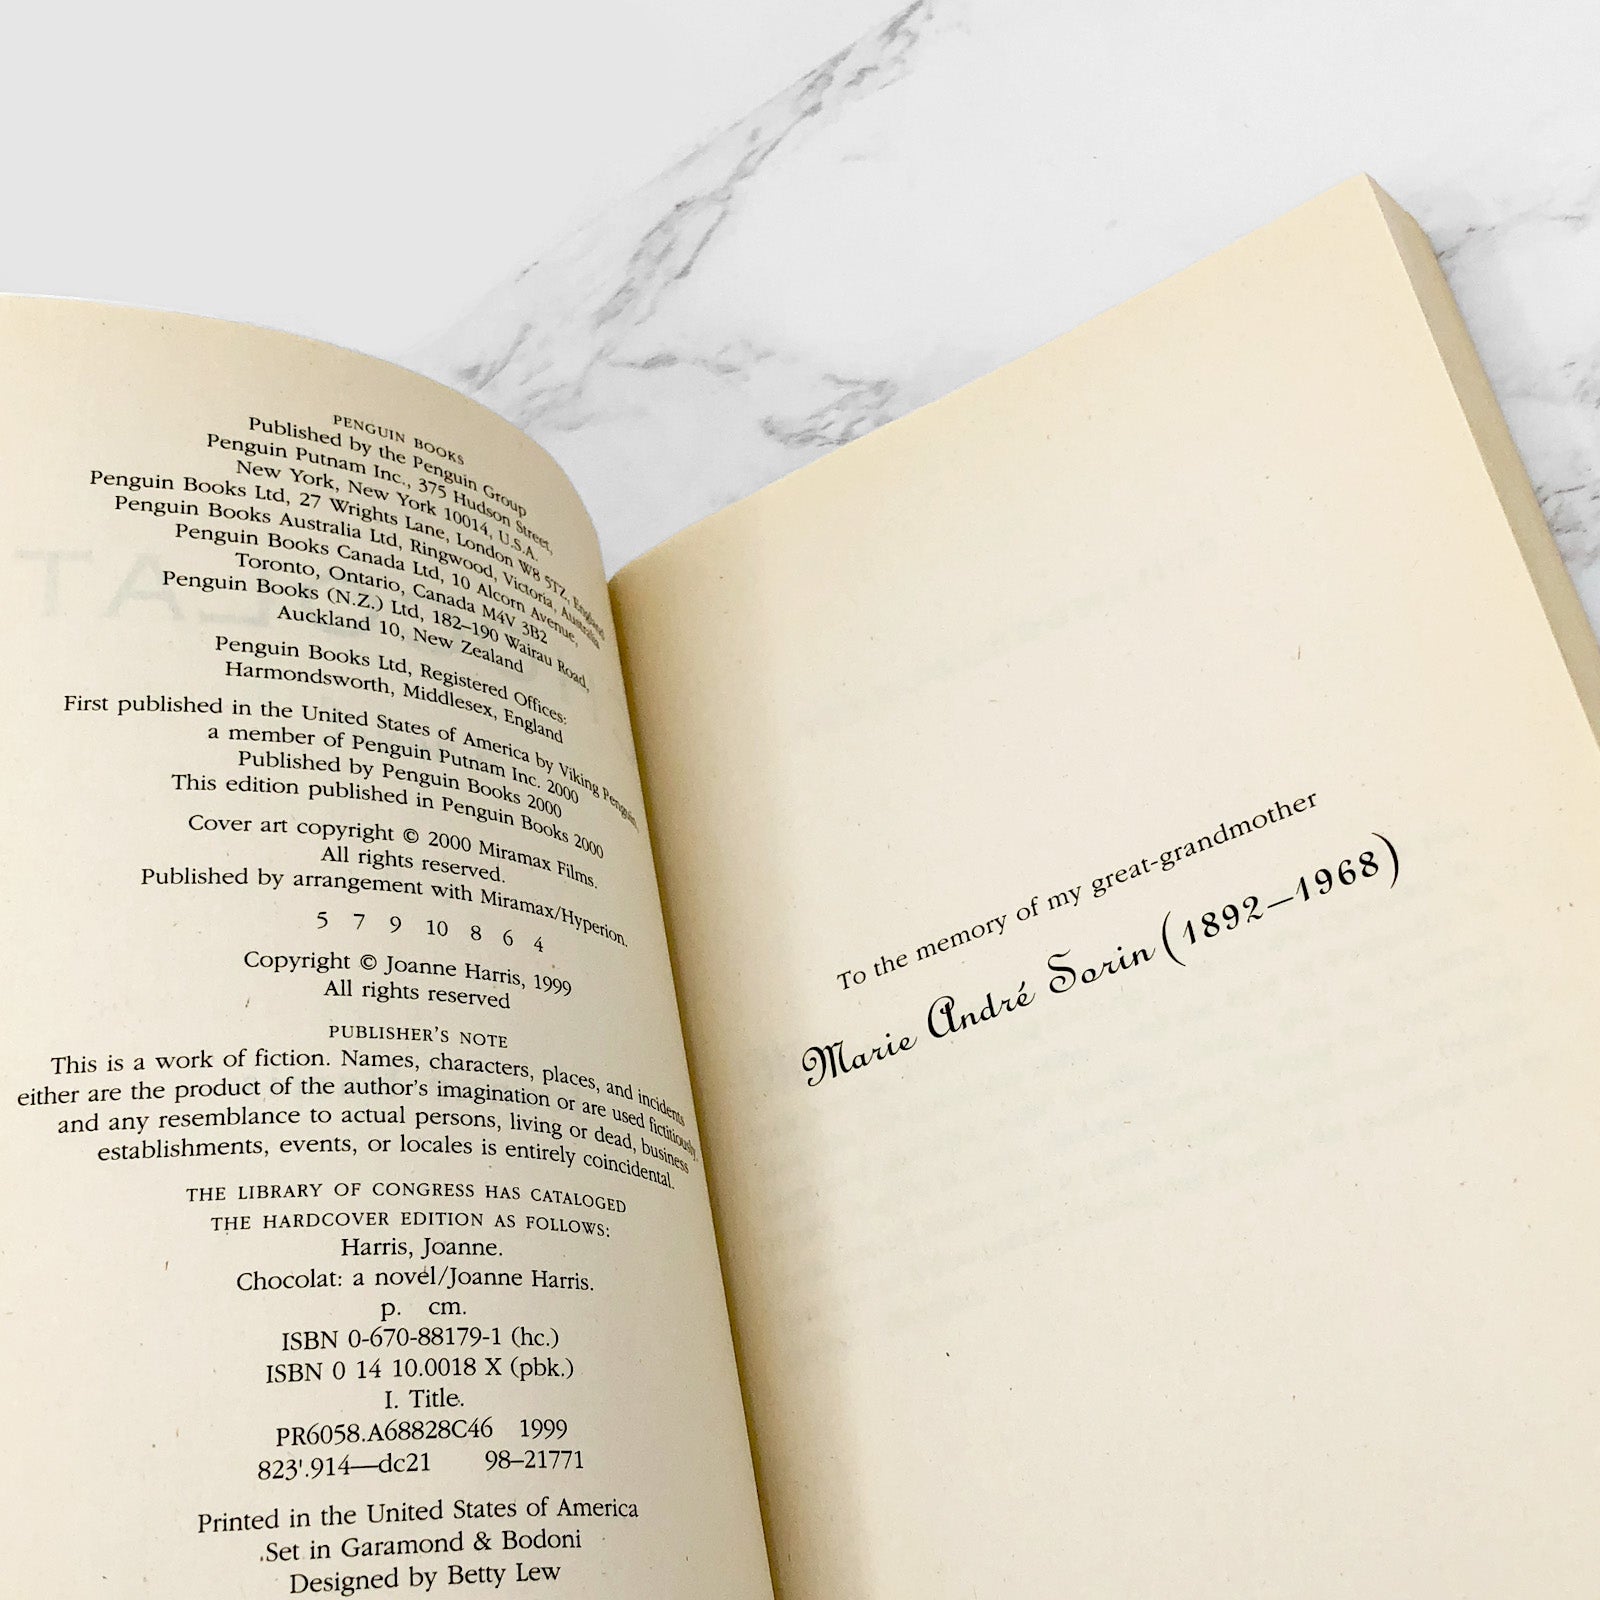 PENGUIN BOOKS
Published by the Penguin Group
Penguin Putnam Inc., 375 Hudson Street,
New York, New York 10014, U.S.A.
Penguin Books Ltd, 27 Wrights Lane, London W8 5TZ, England
Penguin Books Australia Ltd, Ringwood, Victoria, Australia
Penguin Books Canada Ltd, 10 Alcorn Avenue,
Toronto, Ontario, Canada M4V 3B2
Penguin Books (N.Z.) Ltd, 182–190 Wairau Road,
Auckland 10, New Zealand
Penguin Books Ltd, Registered Offices:
Harmondsworth, Middlesex, England
First published in the United States of America by Viking Penguin,
a member of Penguin Putnam Inc. 2000
Published by Penguin Books 2000
This edition published in Penguin Books 2000
Cover art copyright © 2000 Miramax Films.
All rights reserved.
Published by arrangement with Miramax/Hyperion.
5 7 9 10 8 6 4
Copyright © Joanne Harris, 1999
All rights reserved
PUBLISHER'S NOTE
This is a work of fiction. Names, characters, places, and incidents
either are the product of the author's imagination or are used fictitiously,
and any resemblance to actual persons, living or dead, business
establishments, events, or locales is entirely coincidental.
THE LIBRARY OF CONGRESS HAS CATALOGED
THE HARDCOVER EDITION AS FOLLOWS:
Harris, Joanne.
Chocolat: a novel/Joanne Harris.
p. cm.
ISBN 0-670-88179-1 (hc.)
ISBN 0 14 10.0018 X (pbk.)
I. Title.
PR6058.A68828C46 1999
823'.914—dc21 98–21771
Printed in the United States of America
Set in Garamond & Bodoni
Designed by Betty Lew
To the memory of my great-grandmother
Marie André Sorin (1892–1968)